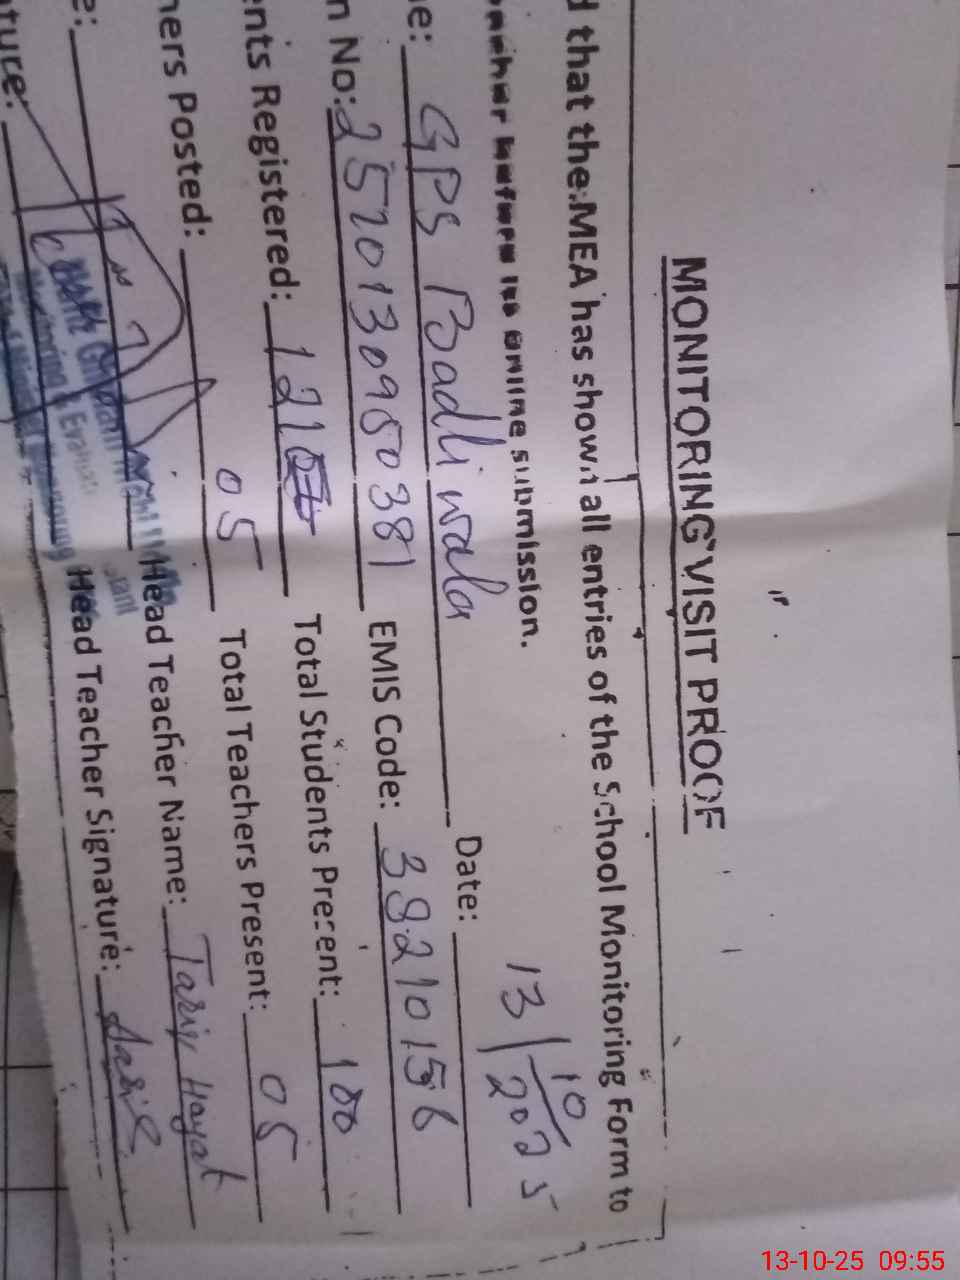 MONITORING VISIT PROOF
d that the MEA has shown all entries of the School Monitoring Form to
before its online submission.
e: GPS Badli wala Date: 13/10/2025
n No: 2520130950381 EMIS Code: 38210156
ents Registered: 121 Total Students Present: 100
hers Posted: 05 Total Teachers Present: 05
e: Head Teacher Name: Tariq Hayat
ture: Head Teacher Signature:
Monitoring & Evaluation
13-10-25 09:55